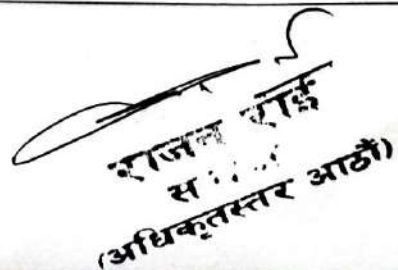 राजन राई
(अधिकृतस्तर आठौं)